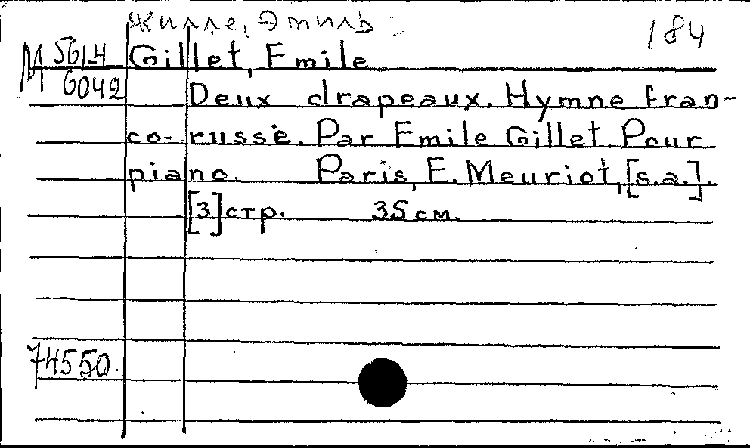 Жилле, Эмиль
184
М 561-4
6042
Gillet, Emile
Deux drapeaux. Hymne fran-
co-russe. Par Emile Gillet. Pour
piano. Paris, E. Meuriot, [s.a.].
[3] стр. 35 см.
74550.